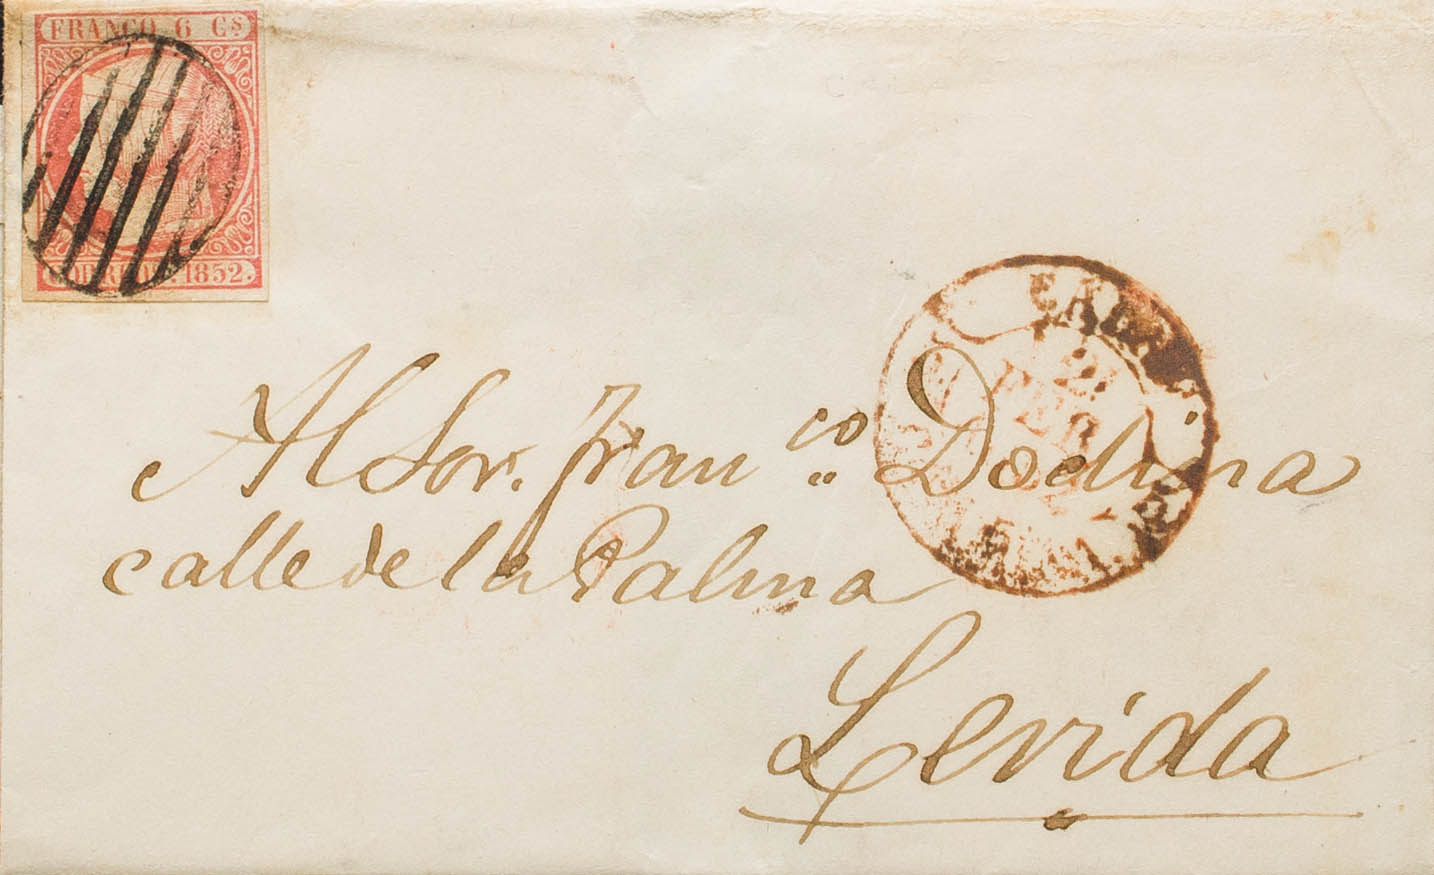 FRANCO. 6 Cs
CORREOS. 1852.
21
FEB
Al Sor. Franco. Dodina
calle de la Palma
Lerida